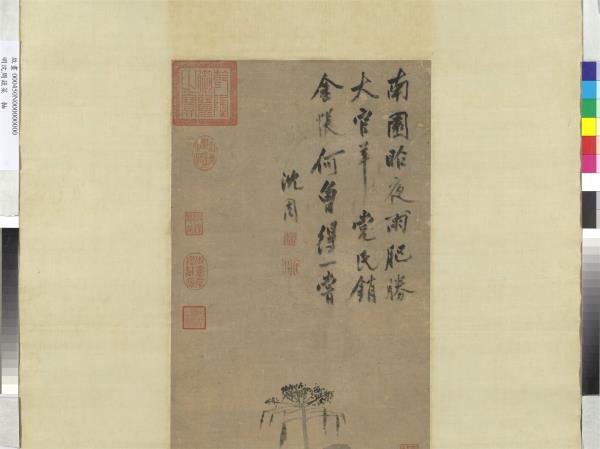 南園昨夜雨肥勝
大官羊党民銷
金帳何曾得一嘗
沈周
故畫 000450N000000000
明沈周蔬菜 軸